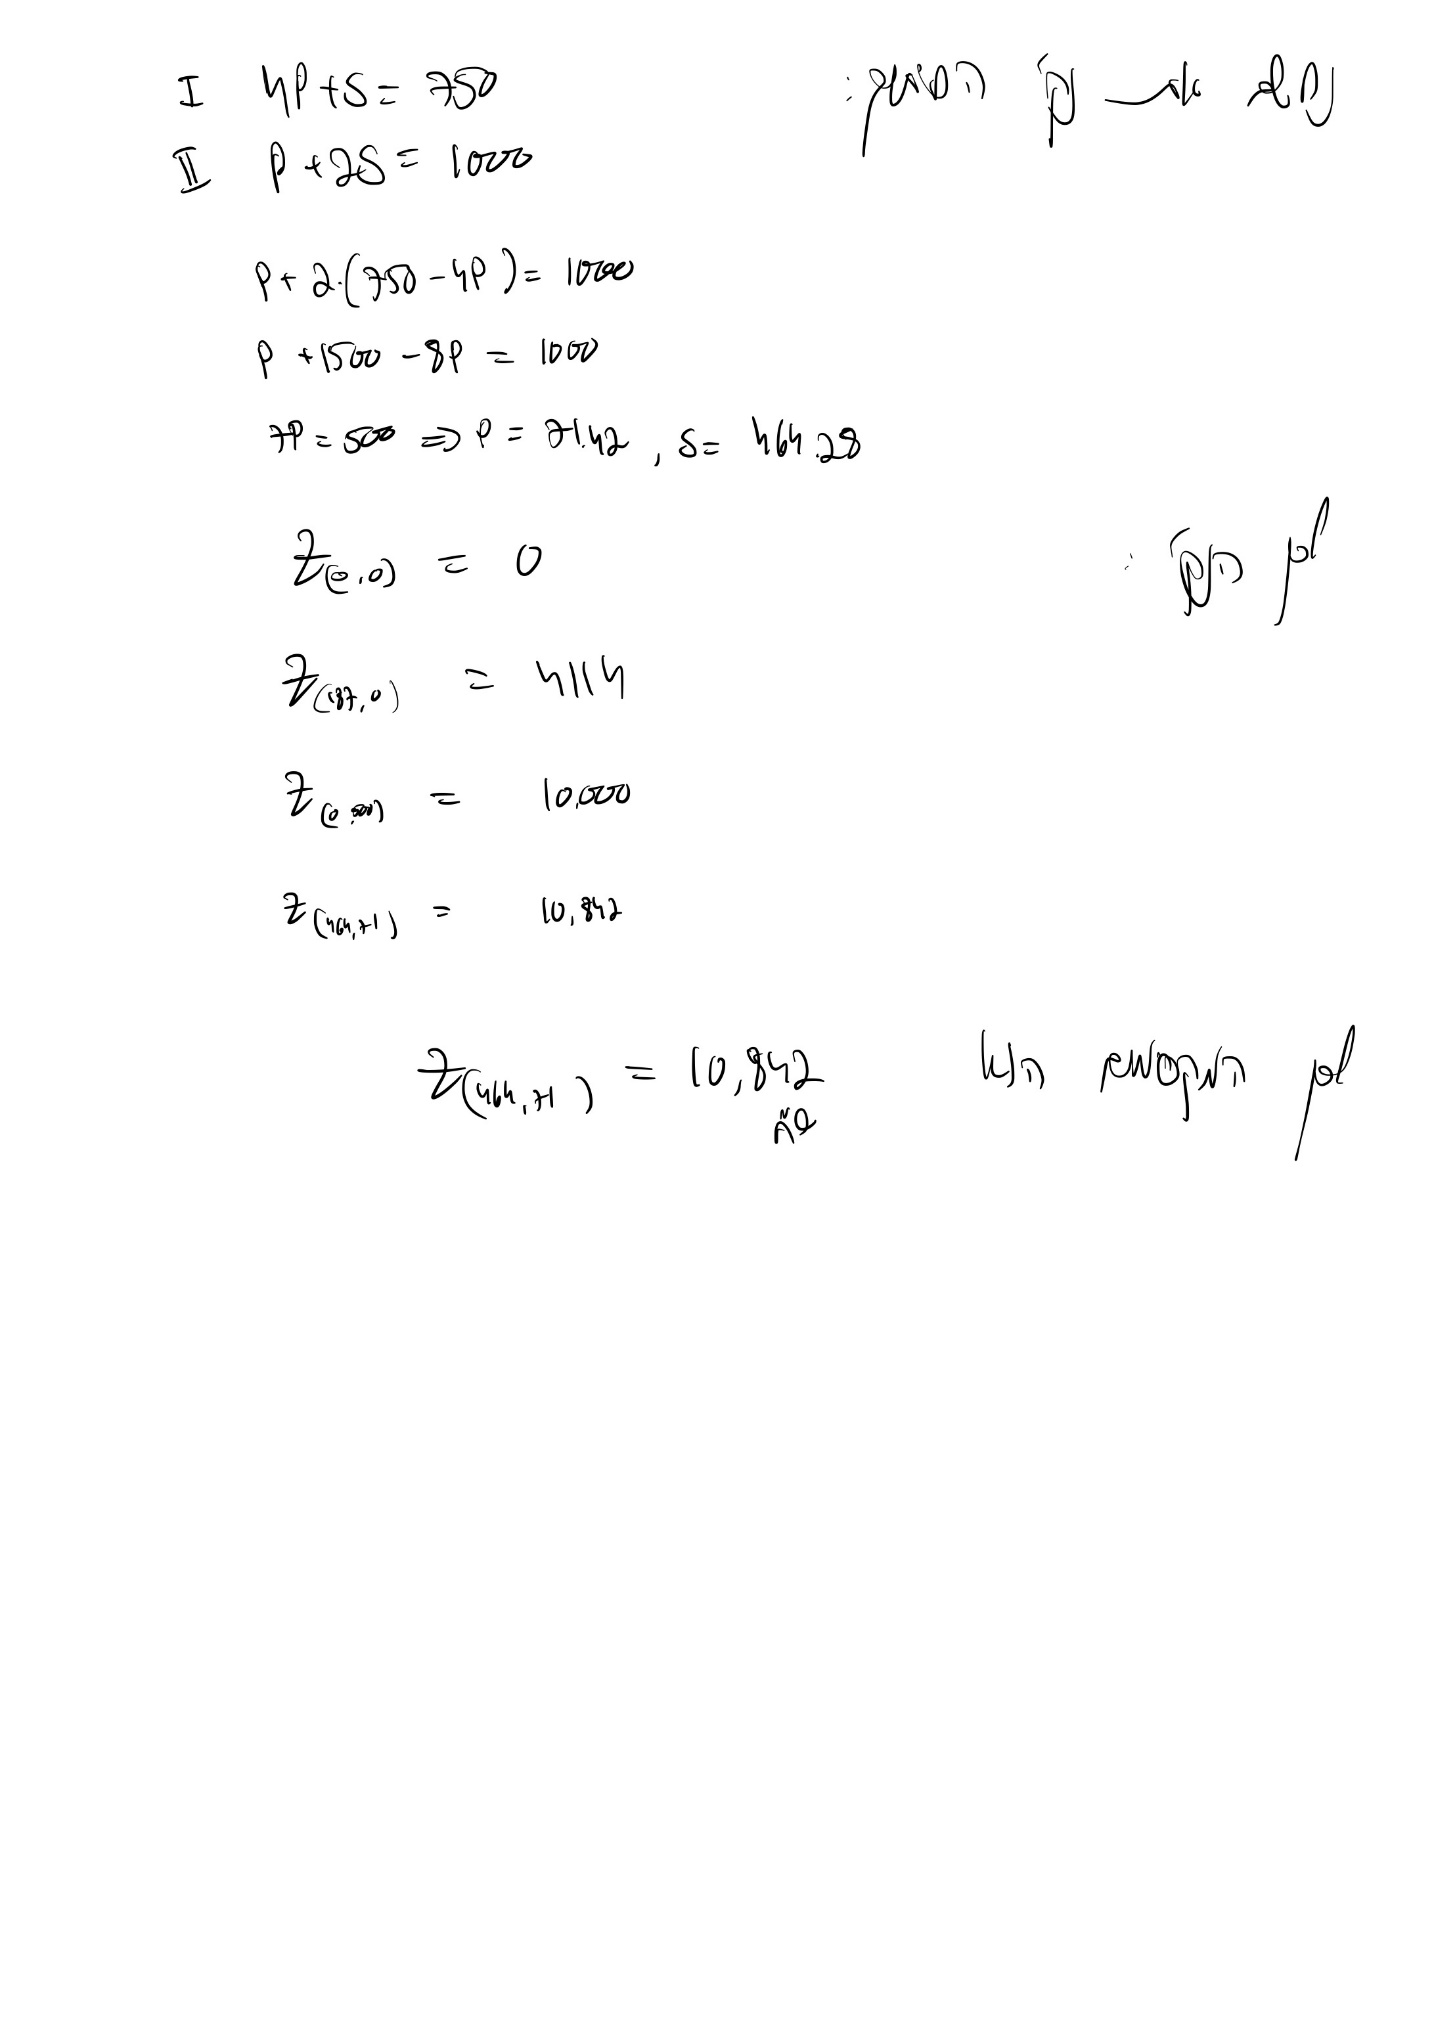 נחשב את נק' החיתוך:
I 4P+S = 750
II P+2S = 1000
P+2·(750-4P) = 1000
P+1500-8P = 1000
7P = 500 => P = 71.42, S = 464.28
הנק':
Z(0,0) = 0
Z(187,0) = 4114
Z(0,500) = 10,000
Z(464,71) = 10,842
המקסימום הוא Z(464,71) = 10,842